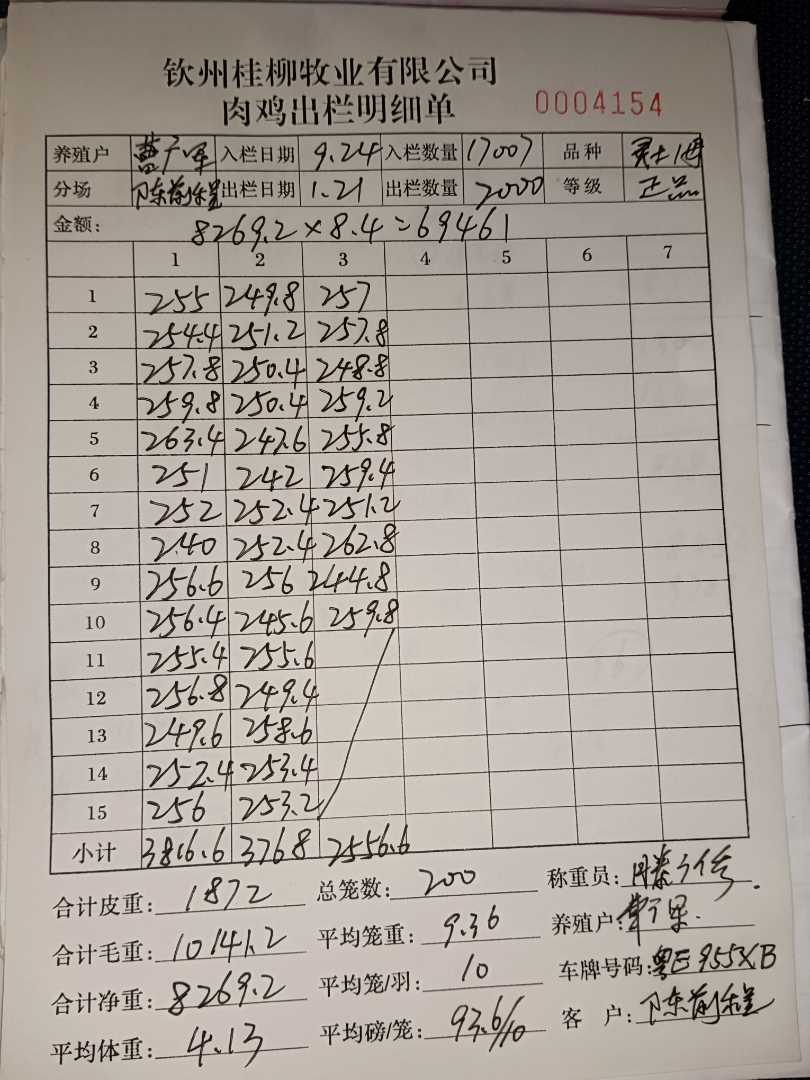 钦州桂柳牧业有限公司
肉鸡出栏明细单 0004154
养殖户 入栏日期 9.24 入栏数量 17007 品种
分场 陈前程 出栏日期 1.21 出栏数量 2000 等级 正品
金额: 8269.2×8.4=69461
1 2 3 4 5 6 7
1 255 249.8 257
2 254.4 251.2 257.8
3 257.8 250.4 248.8
4 259.8 250.4 259.2
5 263.4 247.6 255.8
6 251 242 259.4
7 252 252.4 251.2
8 240 252.4 262.8
9 256.6 256 244.8
10 256.4 245.6 259.8
11 255.4 255.6
12 256.8 249.4
13 249.6 258.6
14 252.4 253.4
15 256 253.2
小计 3816.6 3768 2556.6
合计皮重: 1872 总笼数: 200 称重员:
合计毛重: 10141.2 平均笼重: 9.36 养殖户:
合计净重: 8269.2 平均笼/羽: 10 车牌号码: 粤E955XB
平均体重: 4.13 平均磅/笼: 93.6/10 客 户: 陈前程